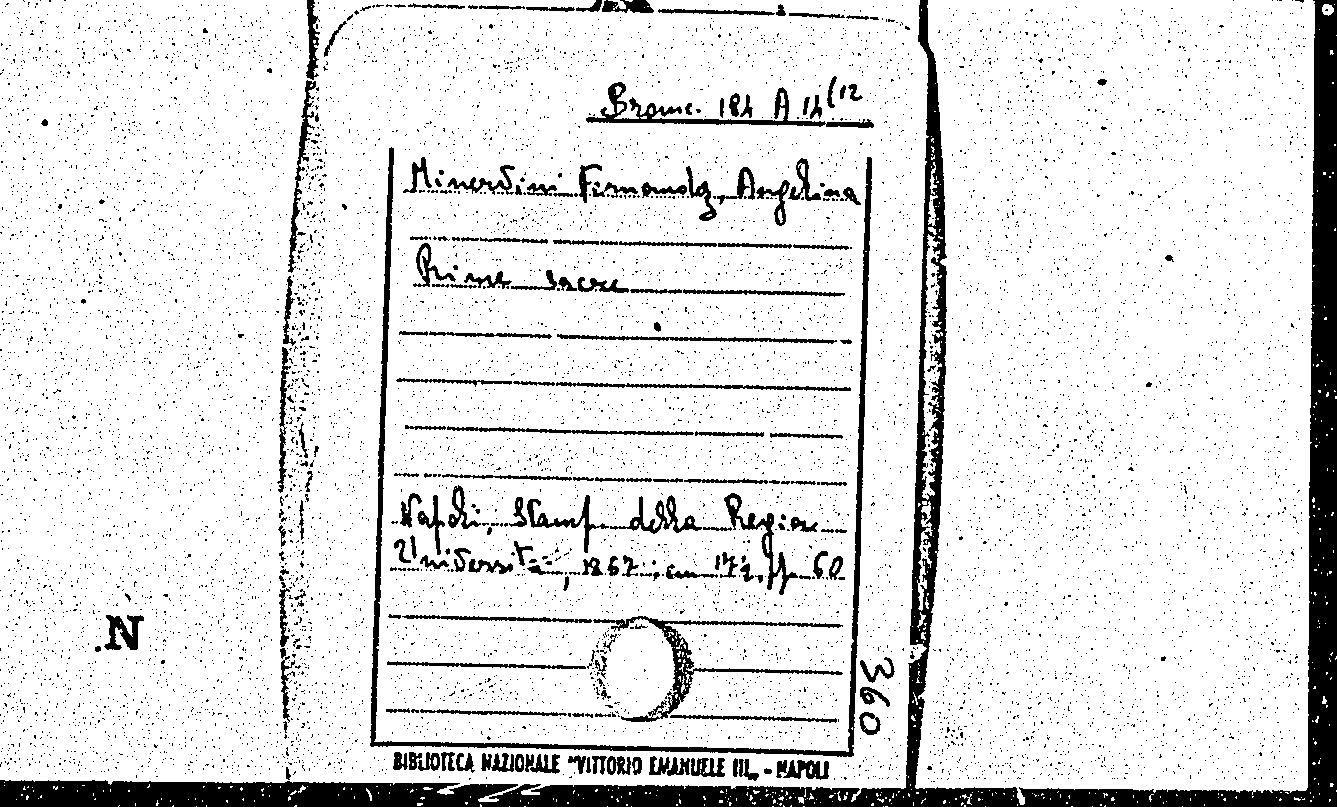 Branc. 184 A 14(12
Minervini Fernandez, Angelina
Rime sacre
Napoli, Stamp. della Regia
Università, 1867; cm 17½, pp. 60
360
.N
BIBLIOTECA NAZIONALE "VITTORIO EMANUELE III„ - NAPOLI